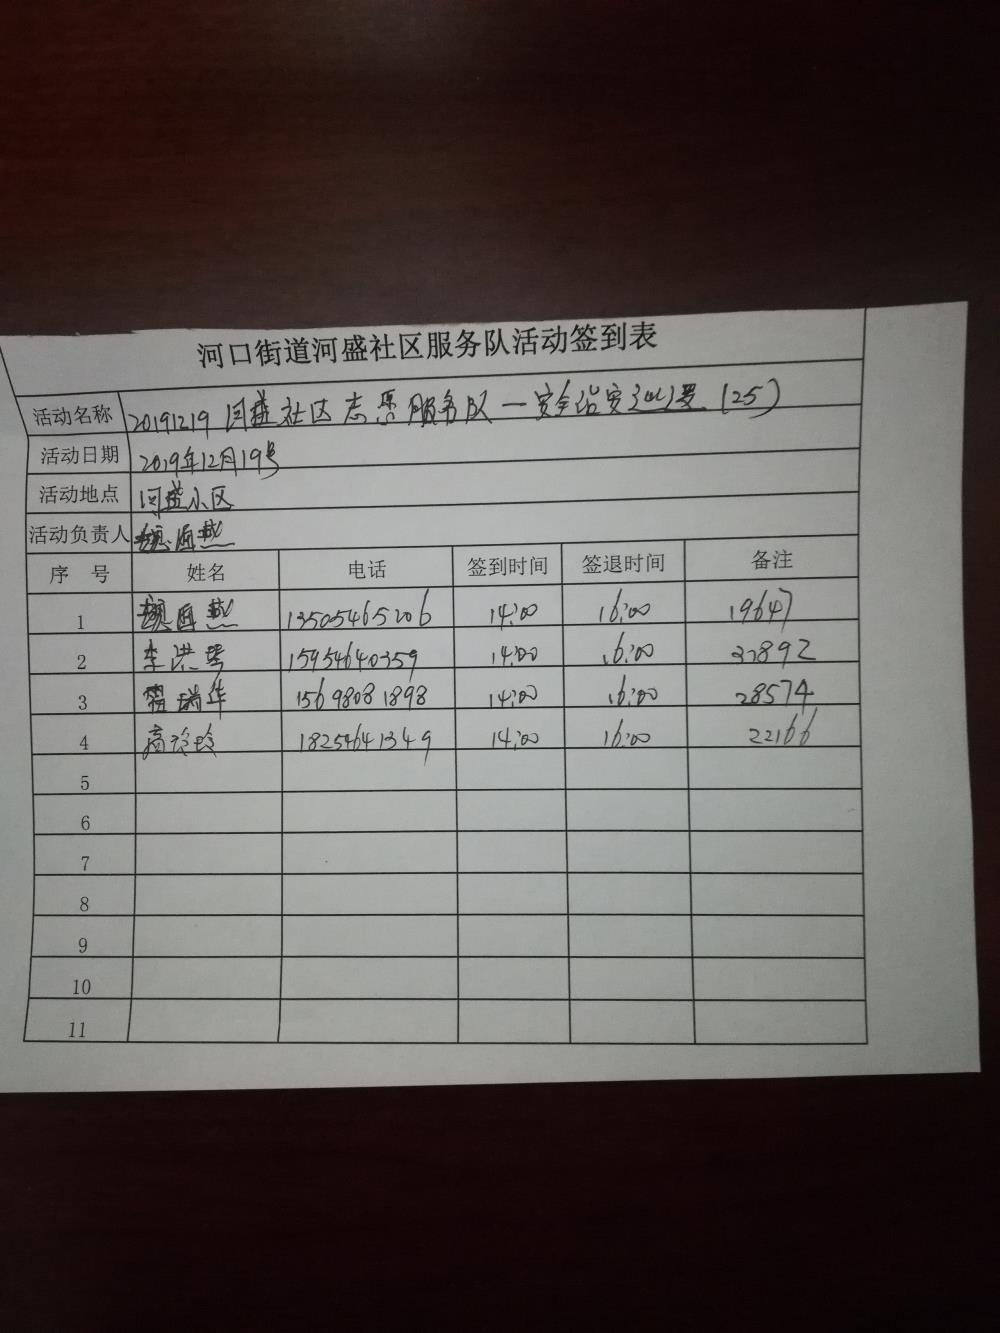 河口街道河盛社区服务队活动签到表
活动名称 20191219河盛社区志愿服务队一安全治安巡逻(25)
活动日期 2019年12月19号
活动地点 河盛小区
活动负责人 魏海燕
序 号 姓名 电话 签到时间 签退时间 备注
1 魏海燕 13505465206 14:00 16:00 19647
2 李洪琴 15954640359 14:00 16:00 37892
3 瑞华 15698081898 14:00 16:00 28574
4 高玲玲 18254641349 14:00 16:00 22166
5
6
7
8
9
10
11